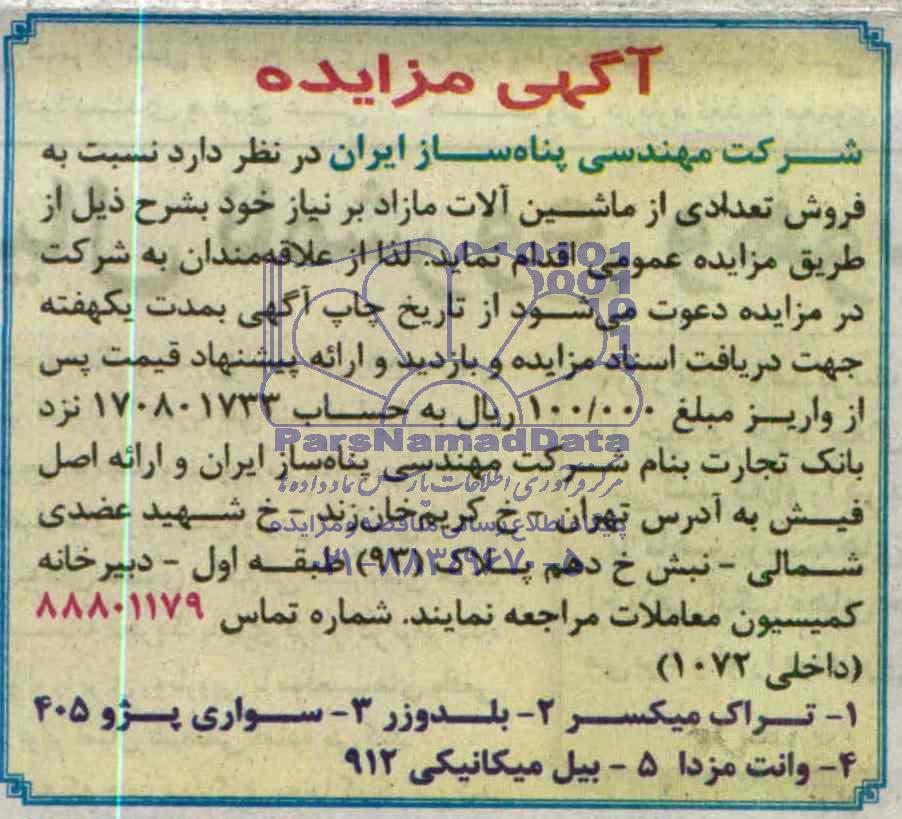 آگهی مزایده
شرکت مهندسی پناه‌ساز ایران در نظر دارد نسبت به
فروش تعدادی از ماشین آلات مازاد بر نیاز خود بشرح ذیل از
طریق مزایده عمومی اقدام نماید. لذا از علاقه‌مندان به شرکت
در مزایده دعوت می‌شود از تاریخ چاپ آگهی بمدت یکهفته
جهت دریافت اسناد مزایده و بازدید و ارائه پیشنهاد قیمت پس
از واریز مبلغ ۱۰۰/۰۰۰ ریال به حساب ۱۷۰۸۰۱۷۳۳ نزد
بانک تجارت بنام شرکت مهندسی پناه‌ساز ایران و ارائه اصل
فیش به آدرس تهران - خ کریم‌خان‌زند - خ شهید عضدی
شمالی - نبش خ دهم پلاک (۹۳) طبقه اول - دبیرخانه
کمیسیون معاملات مراجعه نمایند. شماره تماس ۸۸۸۰۱۱۷۹
(داخلی ۱۰۷۲)
۱- تراک میکسر ۲- بلدوزر ۳- سواری پژو ۴۰۵
۴- وانت مزدا ۵ - بیل میکانیکی ۹۱۲
ParsNamadData
مرکز فرآوری اطلاعات پارس نماد داده ها
پایگاه اطلاع رسانی مناقصه و مزایده